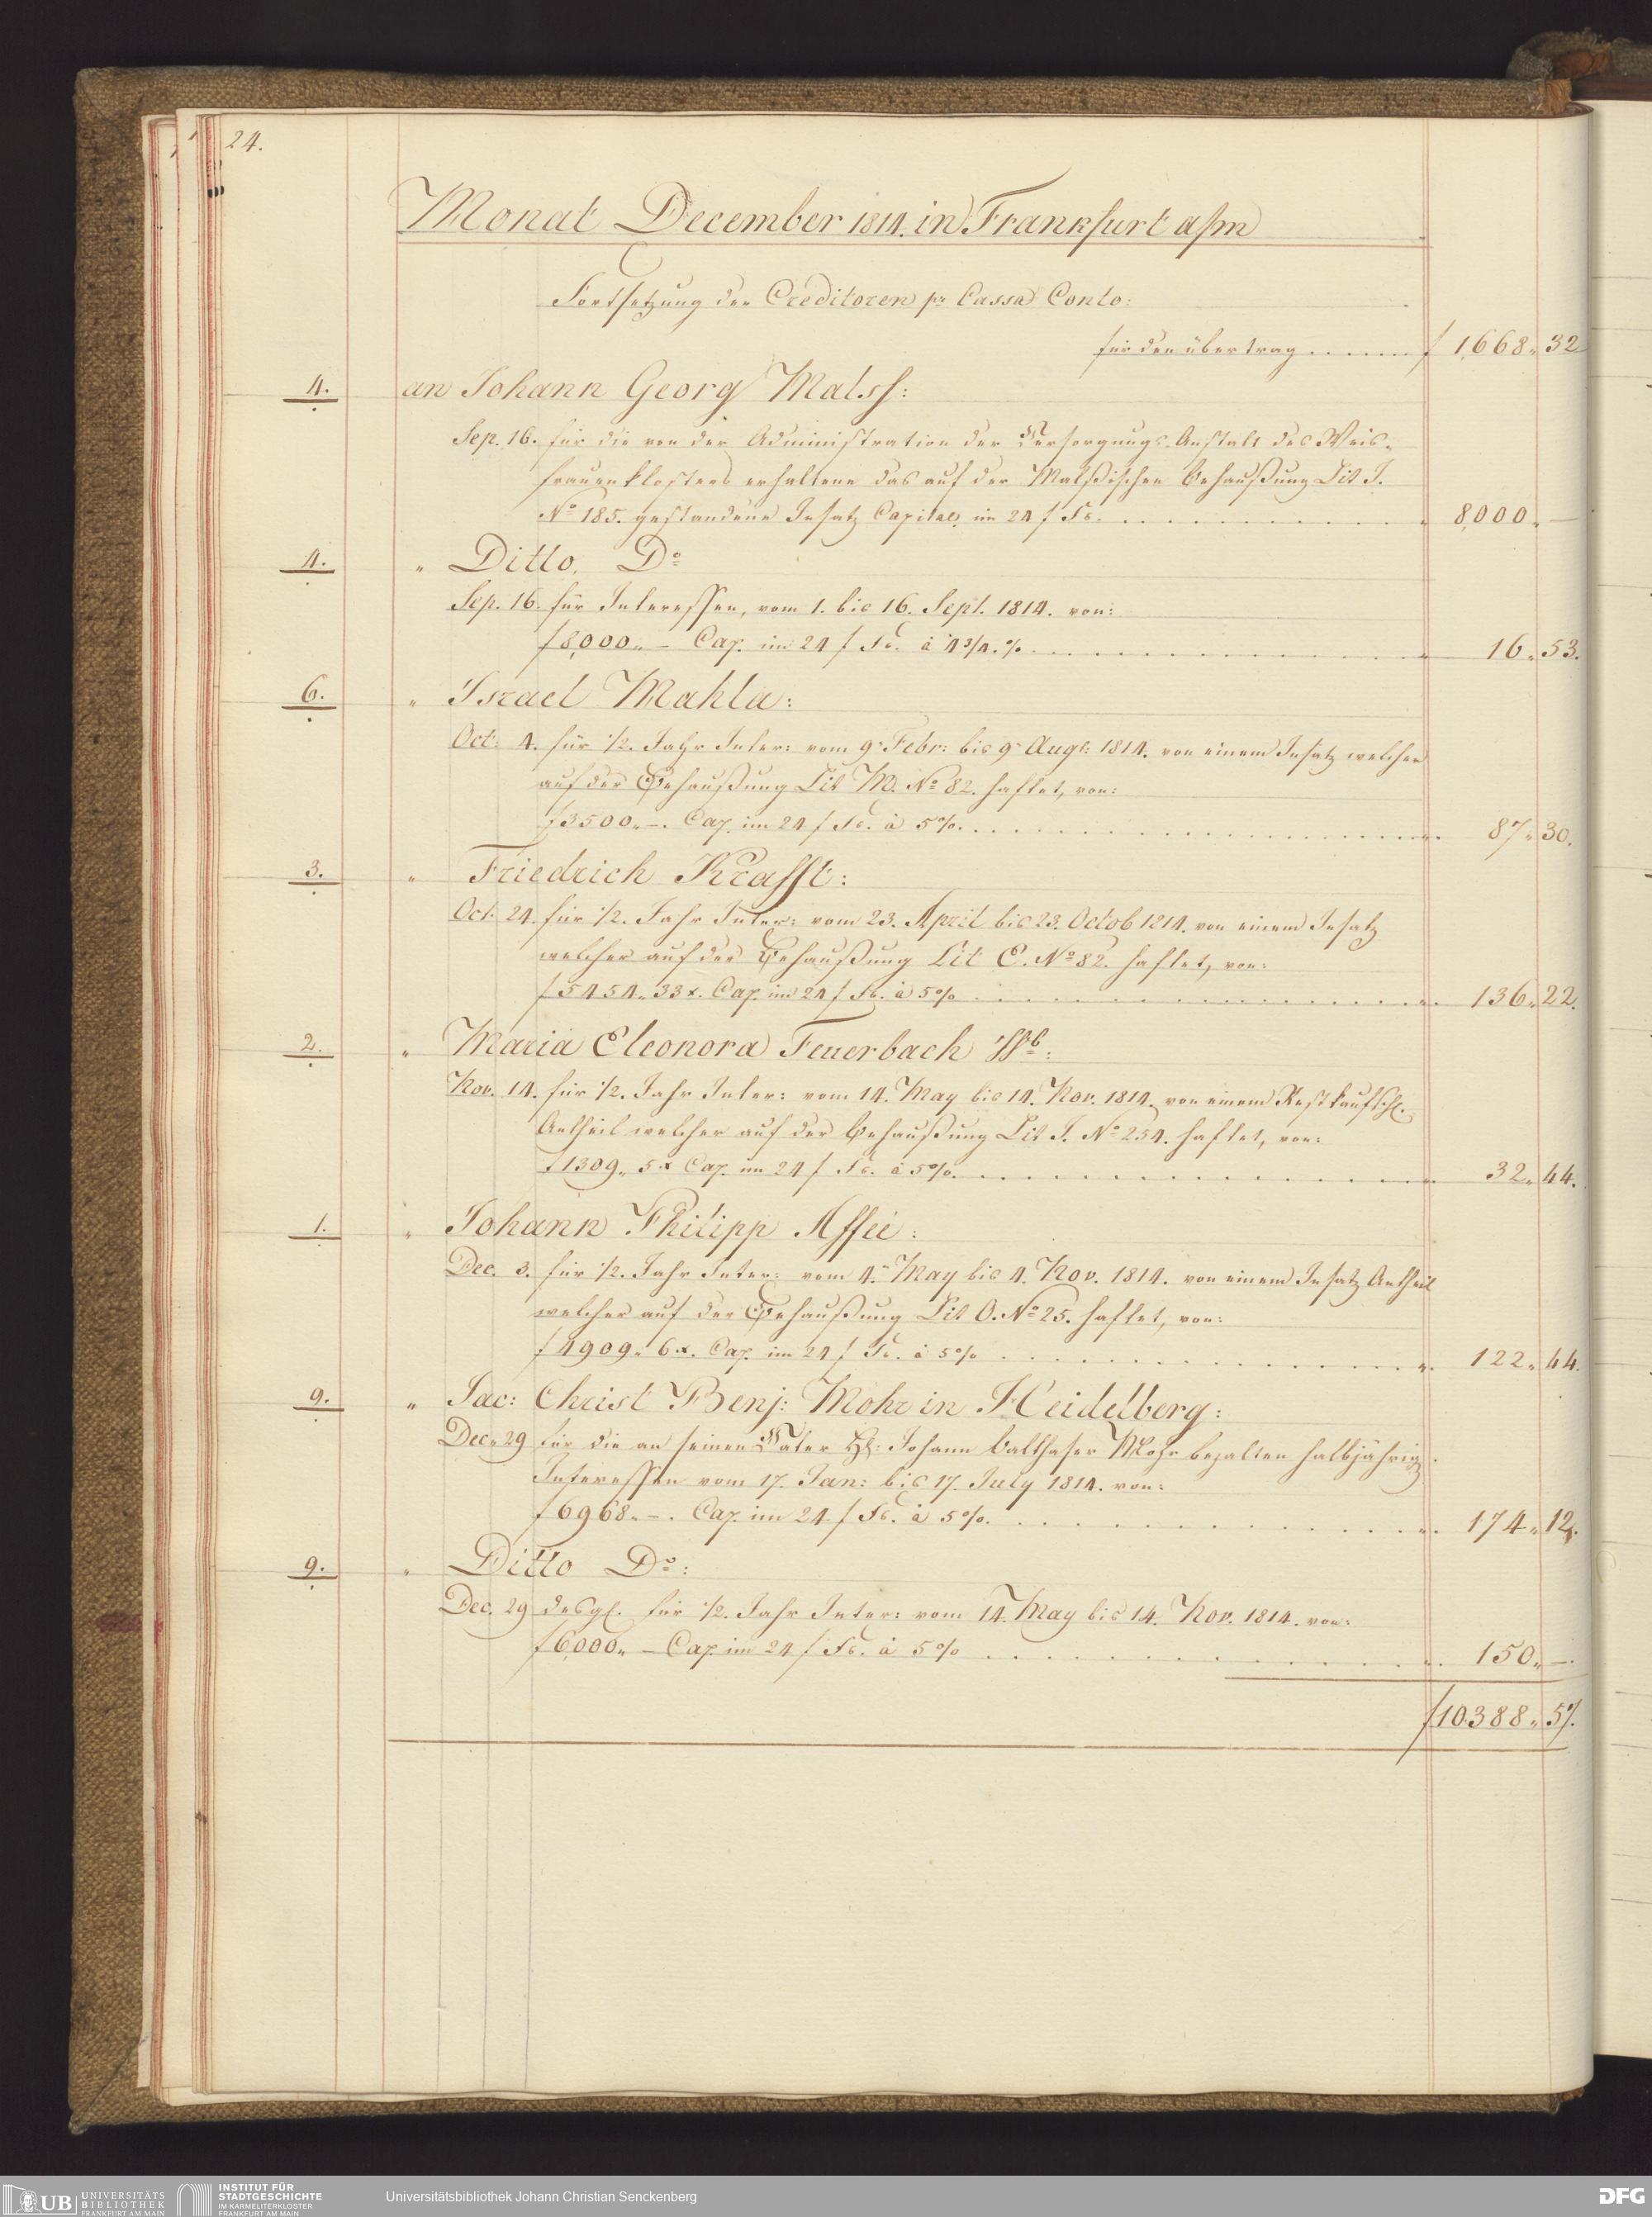 24.
Monat December 1814. in Frankfurt a/m
Fortsetzung der Creditoren pr Cassa Conto:
für den übertrag . . . . . f 1,668 „ 32
4. an Johann Georg Malss:
Sep. 16. für die von der Administration der Versorgungs-Anstalt des Weis-
frauenklosters erhaltene das auf der Malßischen Behaußung Lit J.
No 185. gestandene Insatz Capital, im 24 f Fs. . . . . „ 8,000 „ —
4. „ Ditto, Do
Sep. 16. für Interessen, vom 1. bis 16. Sept. 1814. von:
f 8,000 „ — Cap. im 24 f Fs. à 4 3/4. % . . . . „ 16 „ 53.
6. „ Israel Mahla:
Oct: 4. für 1/2. Jahr Inter: vom 9. Febr: bis 9. Augt: 1814. von einem Insatz welcher
auf der Behaußung Lit M. No 82. haftet, von:
f 3500 „ —. Cap. im 24 f Fs. à 5 %. . . . . „ 87 „ 30.
3. „ Friedrich Krafft:
Oct. 24. für 1/2. Jahr Inter: vom 23. April bis 23. Octob 1814. von einem Insatz
welcher auf der Behaußung Lit E. No 82. haftet, von:
f 5454 „ 33 x. Cap. im 24 f Fs. à 5 % . . . . „ 136 „ 22.
2. „ Maria Eleonora Feuerbach Wb:
Nov. 14. für 1/2. Jahr Inter: vom 14. May bis 14. Nov. 1814. von einem Restkaufschl.
Antheil welcher auf der Behaußung Lit J. No 254. haftet, von:
f 1309 „ 5 x Cap. im 24 f Fs. à 5 %. . . . . „ 32 „ 44.
1. „ Johann Philipp Affei:
Dec. 3. für 1/2. Jahr Inter: vom 4. May bis 4. Nov. 1814. von einem Insatz Antheil
welcher auf der Behaußung Lit O. No 25. haftet, von:
f 4909 „ 6 x. Cap. im 24 f Fs. à 5 % . . . . „ 122 „ 44.
9. „ Jac: Christ Benj: Mohr in Heidelberg:
Dec. 29 für die an seinen Vater H: Johann Balthaser Mohr bezalten halbjährig.
Interessen vom 17. Jan: bis 17. July 1814. von:
f 6968 „ —. Cap. im 24 f Fs. à 5 %. . . . . „ 174 „ 12.
9. „ Ditto Do:
Dec. 29 desgl. für 1/2. Jahr Inter: vom 14. May bis 14. Nov. 1814. von:
f 6,000 „ — Cap. im 24 f Fs. à 5 % . . . . „ 150 „ —.
f 10388 „ 57.
UB UNIVERSITÄTS
BIBLIOTHEK
FRANKFURT AM MAIN
INSTITUT FÜR
STADTGESCHICHTE
IM KARMELITERKLOSTER
FRANKFURT AM MAIN
Universitätsbibliothek Johann Christian Senckenberg
DFG